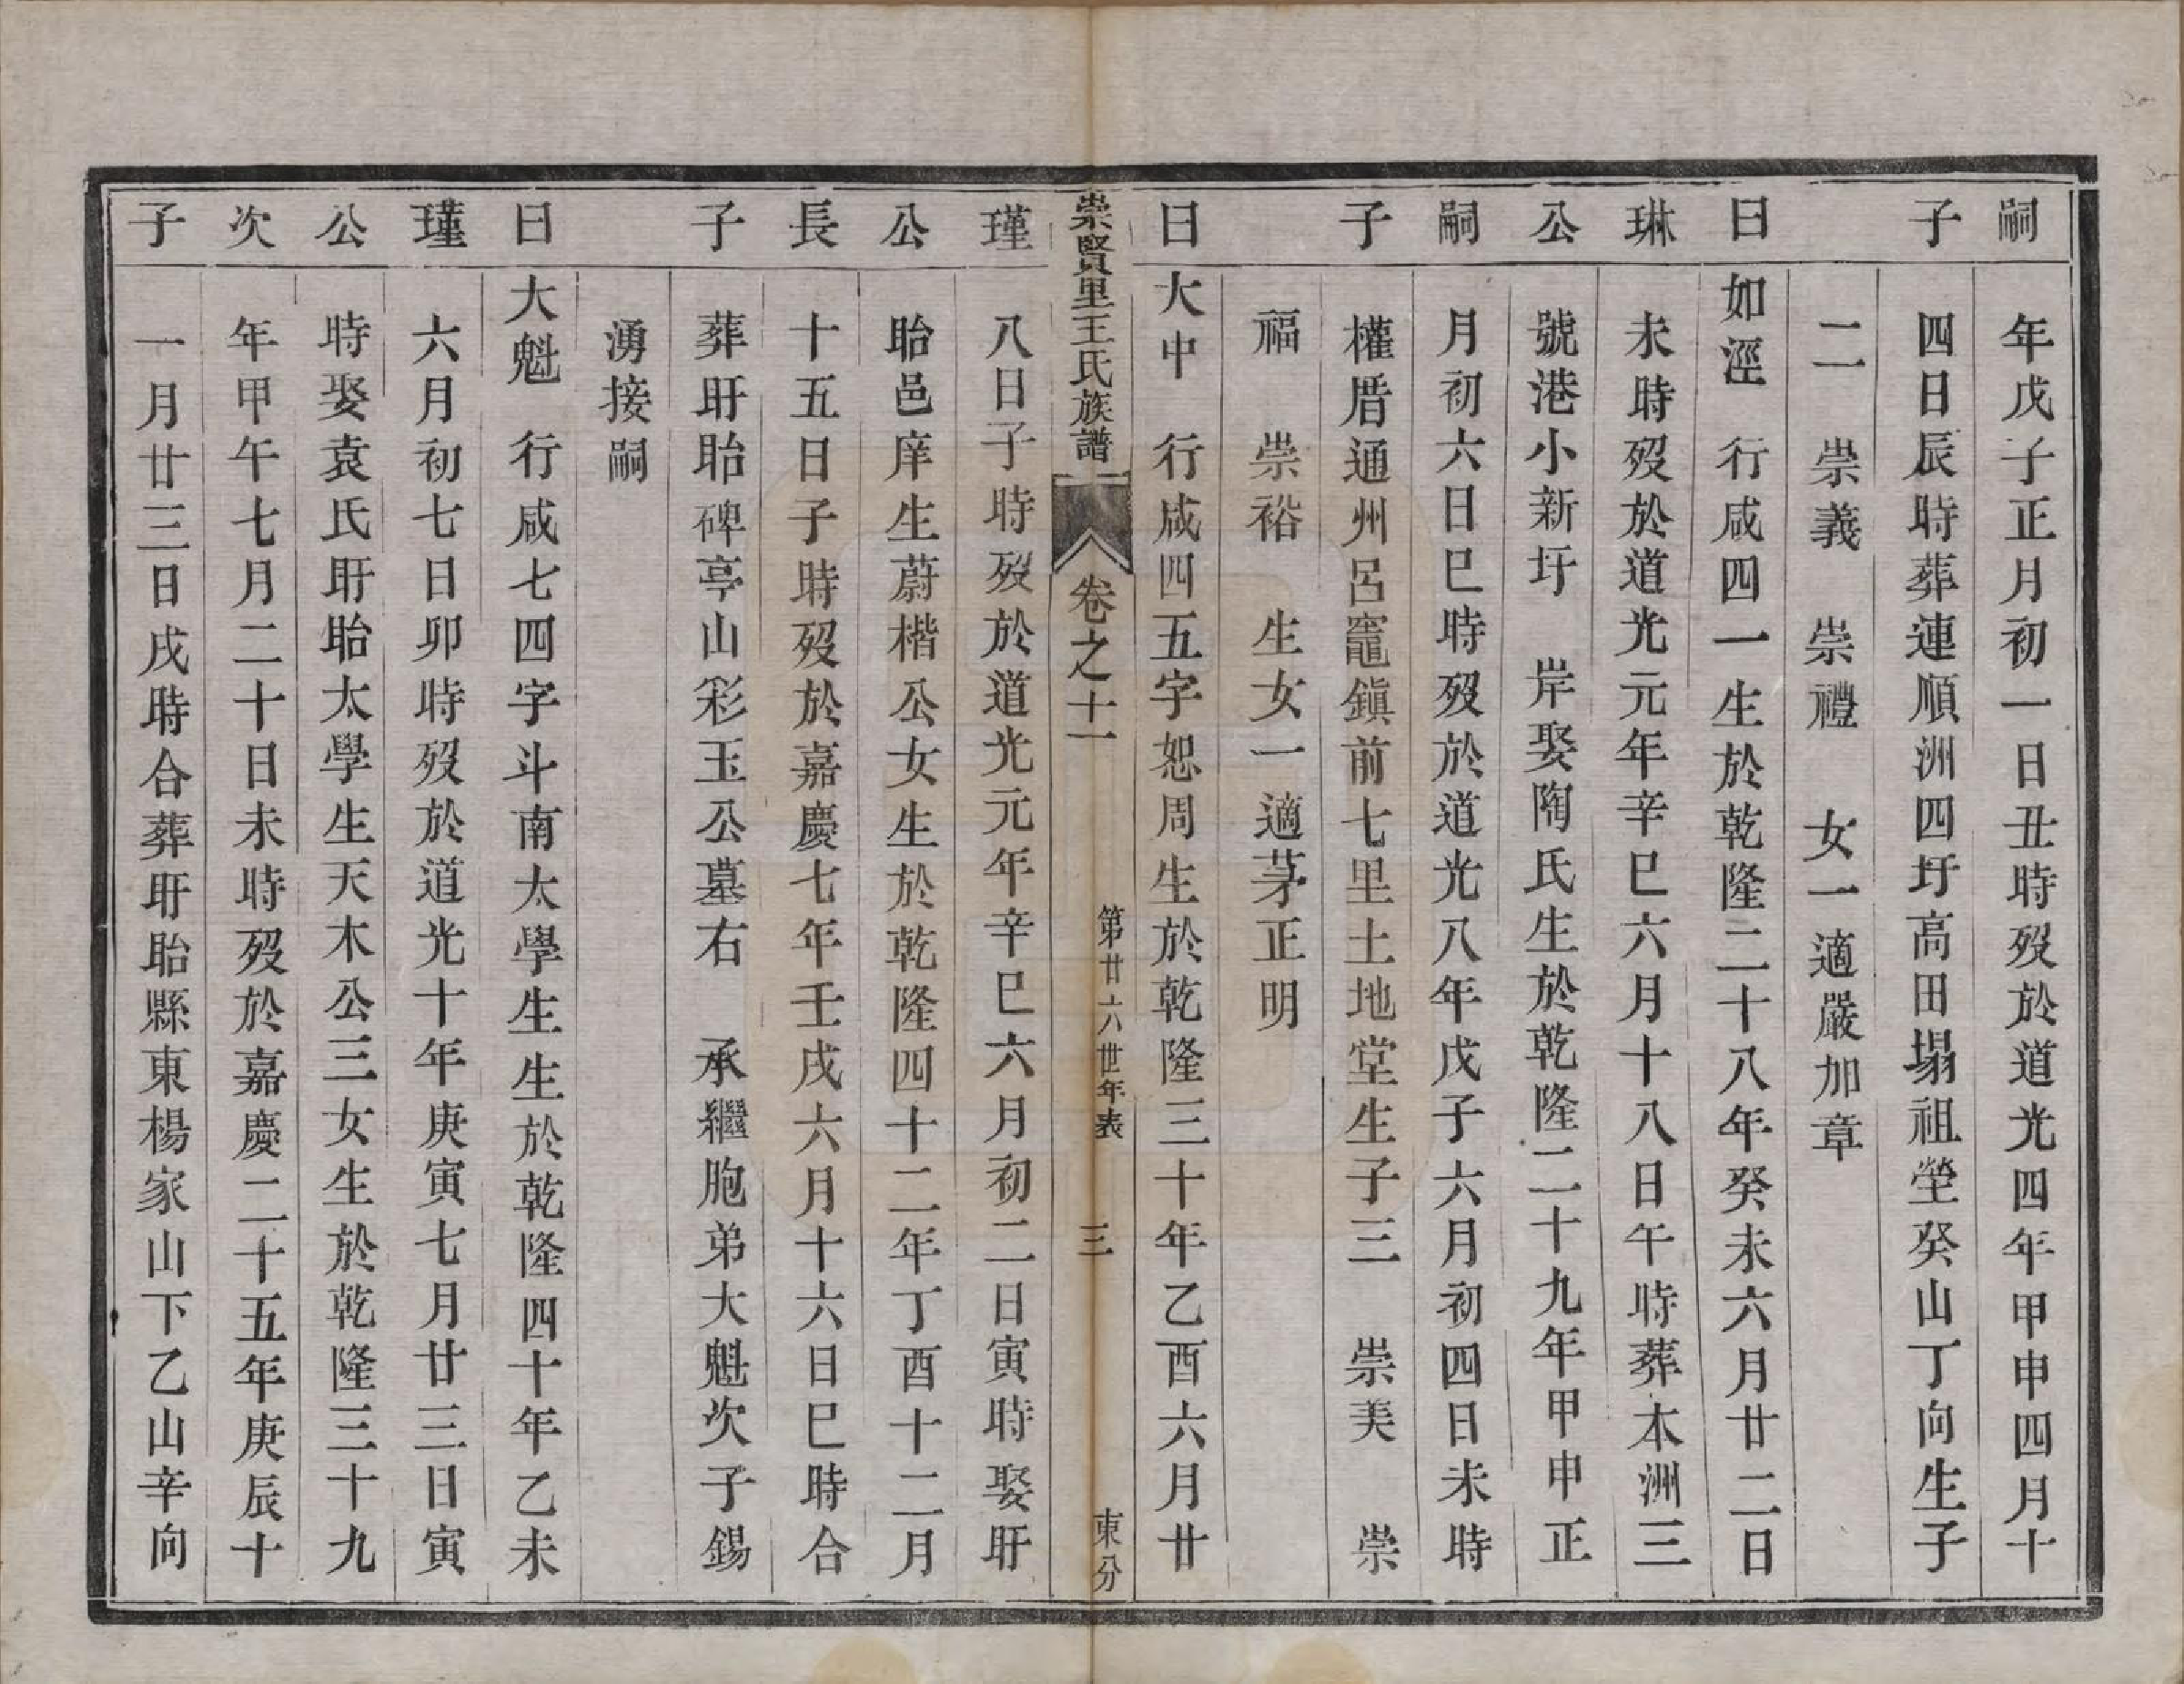 嗣 年戊子正月初一日丑時歿於道光四年甲申四月十
子 四日辰時葬連順洲四圩高田塌祖塋癸山丁向生子
二 崇義 崇禮 女一適嚴加章
曰 如涇 行咸四一生於乾隆二十八年癸未六月廿二日
琳 未時歿於道光元年辛巳六月十八日午時葬本洲三
公 號港小新圩 岸娶陶氏生於乾隆二十九年甲申正
嗣 月初六日巳時歿於道光八年戊子六月初四日未時
子 權厝通州呂竈鎮前七里土地堂生子三 崇美 崇
福 崇裕 生女一適茅正明
曰 大中 行咸四五字恕周生於乾隆三十年乙酉六月廿
崇賢里王氏族譜 卷之十一 第廿六世年表 三 東分
瑾 八日子時歿於道光元年辛巳六月初二日寅時娶盱
公 眙邑庠生蔚楷公女生於乾隆四十二年丁酉十二月
長 十五日子時歿於嘉慶七年壬戌六月十六日巳時合
子 葬盱眙碑亭山彩玉公墓右 承繼胞弟大魁次子錫
湧接嗣
曰 大魁 行咸七四字斗南太學生生於乾隆四十年乙未
瑾 六月初七日卯時歿於道光十年庚寅七月廿三日寅
公 時娶袁氏盱眙太學生天木公三女生於乾隆三十九
次 年甲午七月二十日未時歿於嘉慶二十五年庚辰十
子 一月廿三日戌時合葬盱眙縣東楊家山下乙山辛向